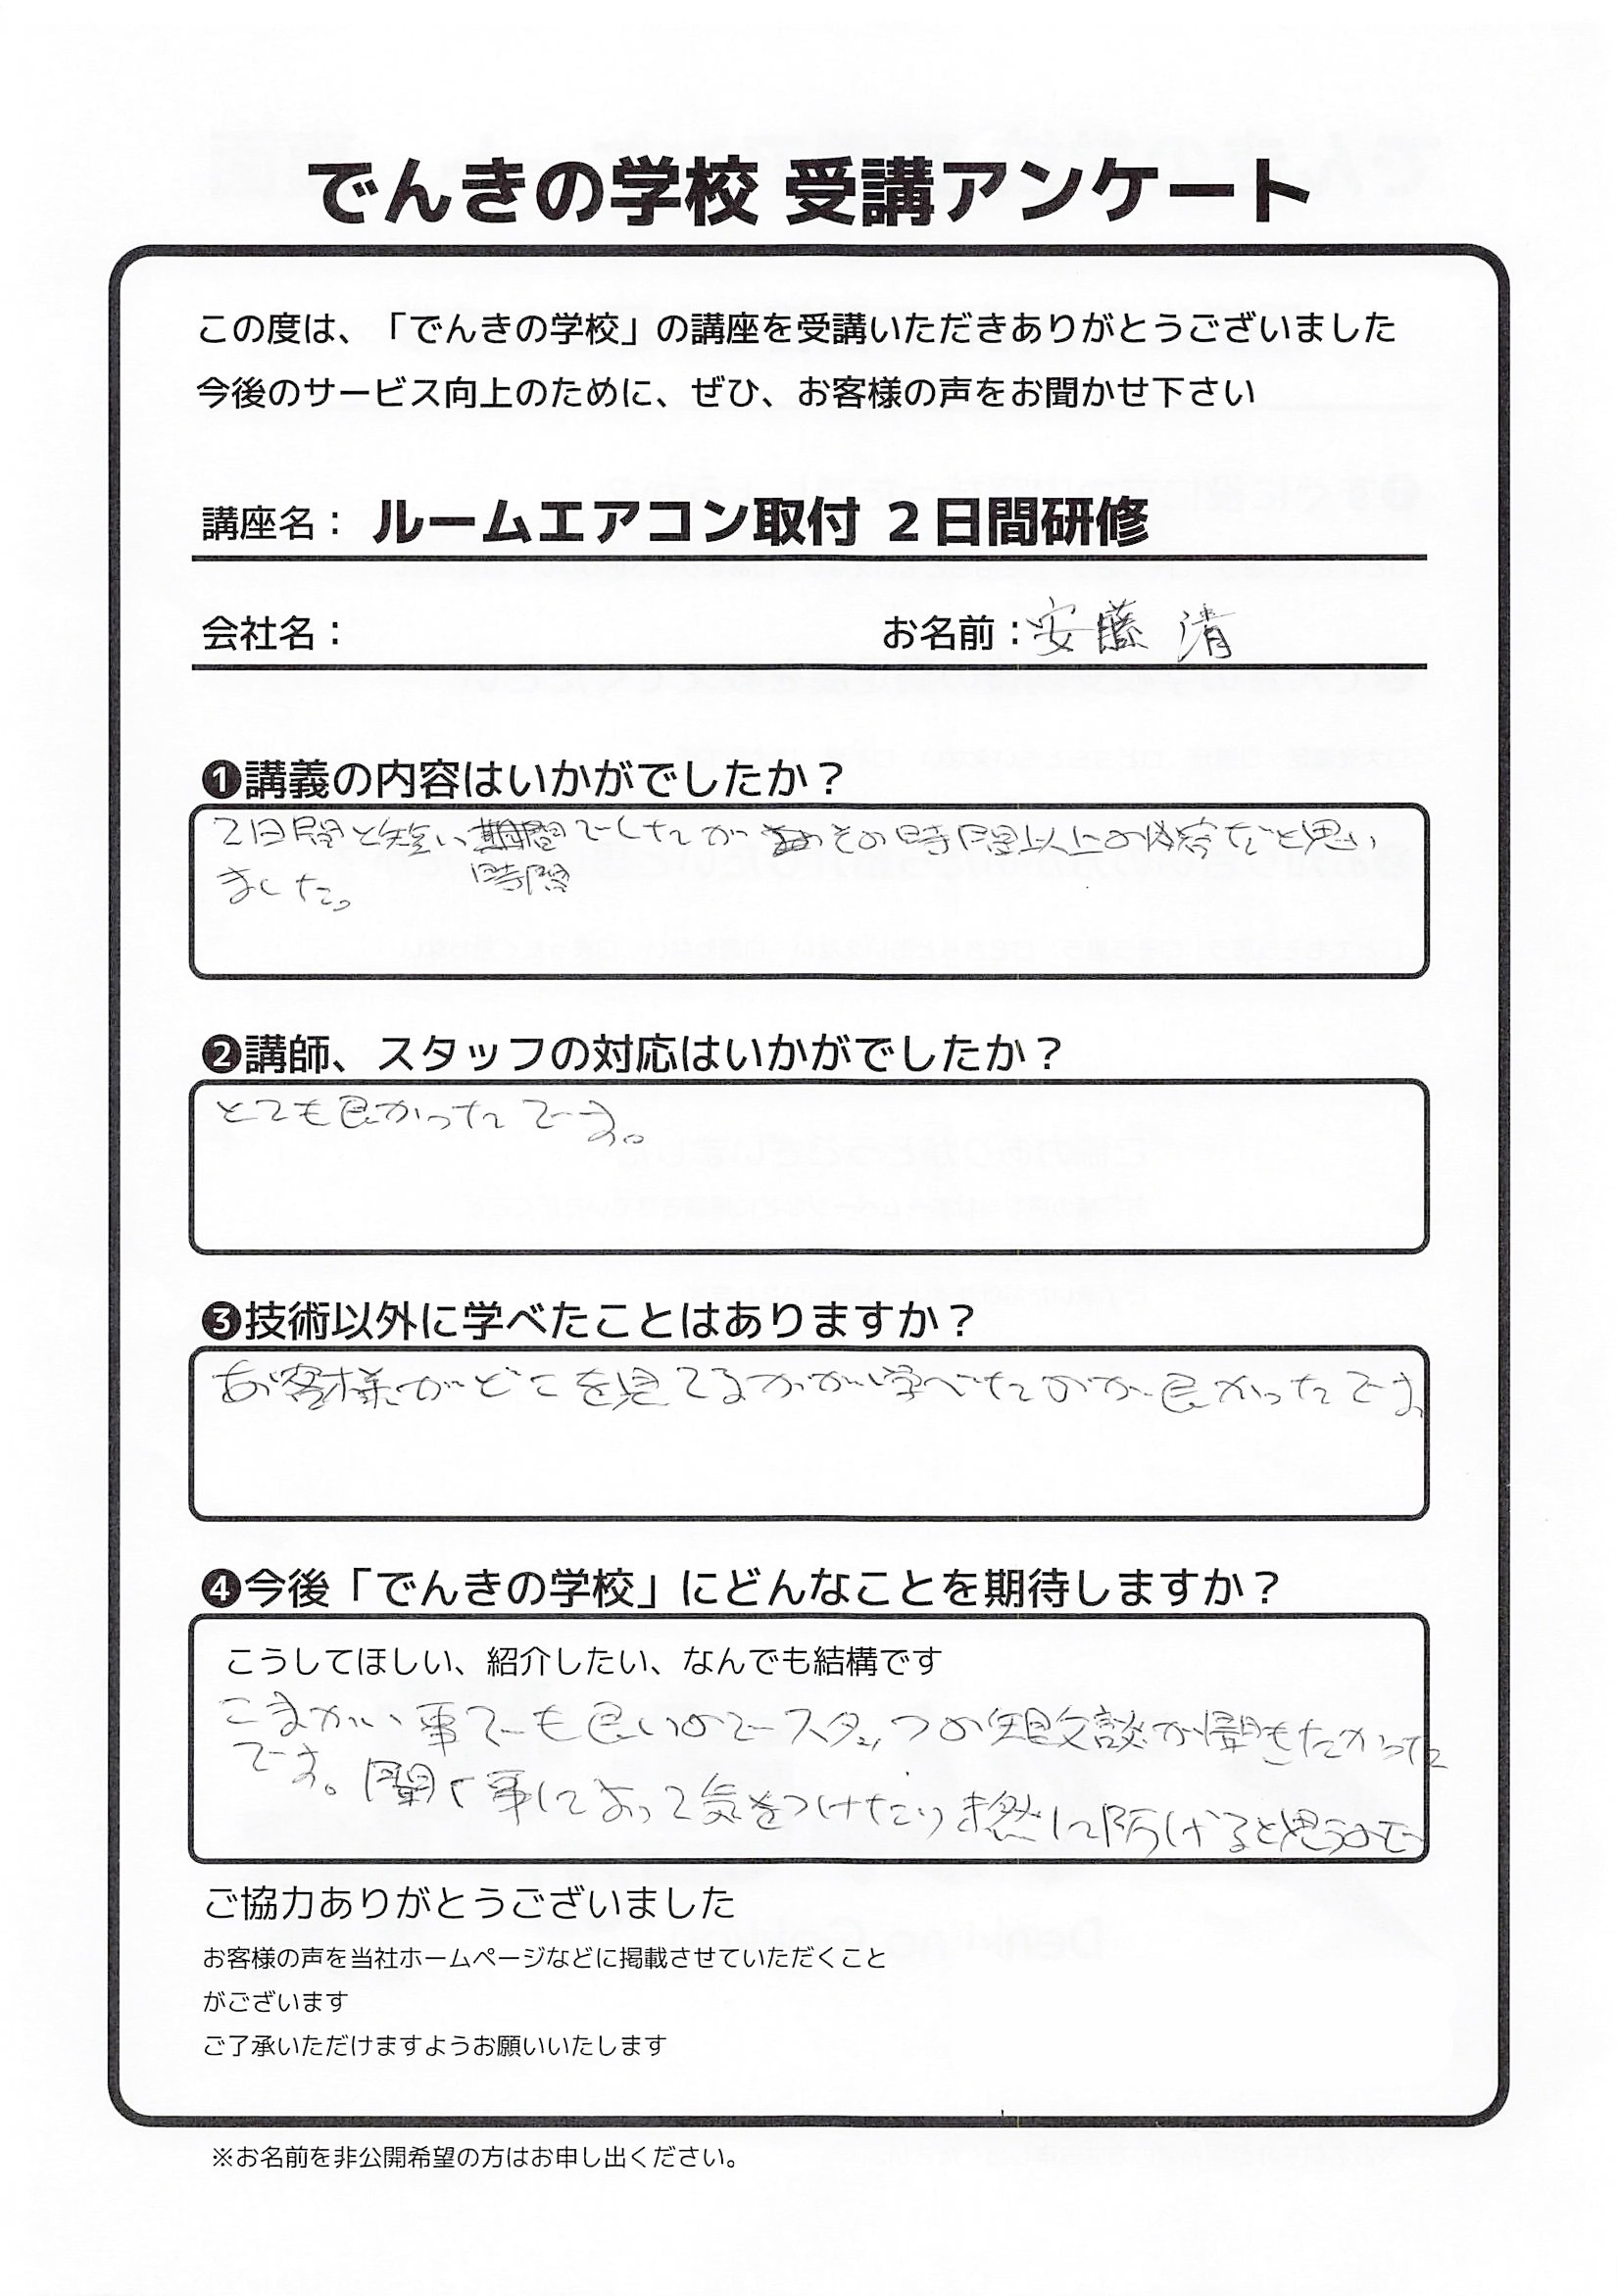 でんきの学校 受講アンケート
この度は、「でんきの学校」の講座を受講いただきありがとうございました
今後のサービス向上のために、ぜひ、お客様の声をお聞かせ下さい
講座名： ルームエアコン取付 2日間研修
会社名： お名前：安藤 清
❶講義の内容はいかがでしたか？
2日間と短い期間でしたが その時間以上の内容だと思い
時間
ました。
❷講師、スタッフの対応はいかがでしたか？
とても良かったです。
❸技術以外に学べたことはありますか？
お客様がどこを見てるかが学べたのが良かったです
❹今後「でんきの学校」にどんなことを期待しますか？
こうしてほしい、紹介したい、なんでも結構です
こまかい事でも良いのでスタッフの 談が聞きたかった
です。聞く事によって気をつけたり未然に防げると思うので
ご協力ありがとうございました
お客様の声を当社ホームページなどに掲載させていただくこと
がございます
ご了承いただけますようお願いいたします
※お名前を非公開希望の方はお申し出ください。